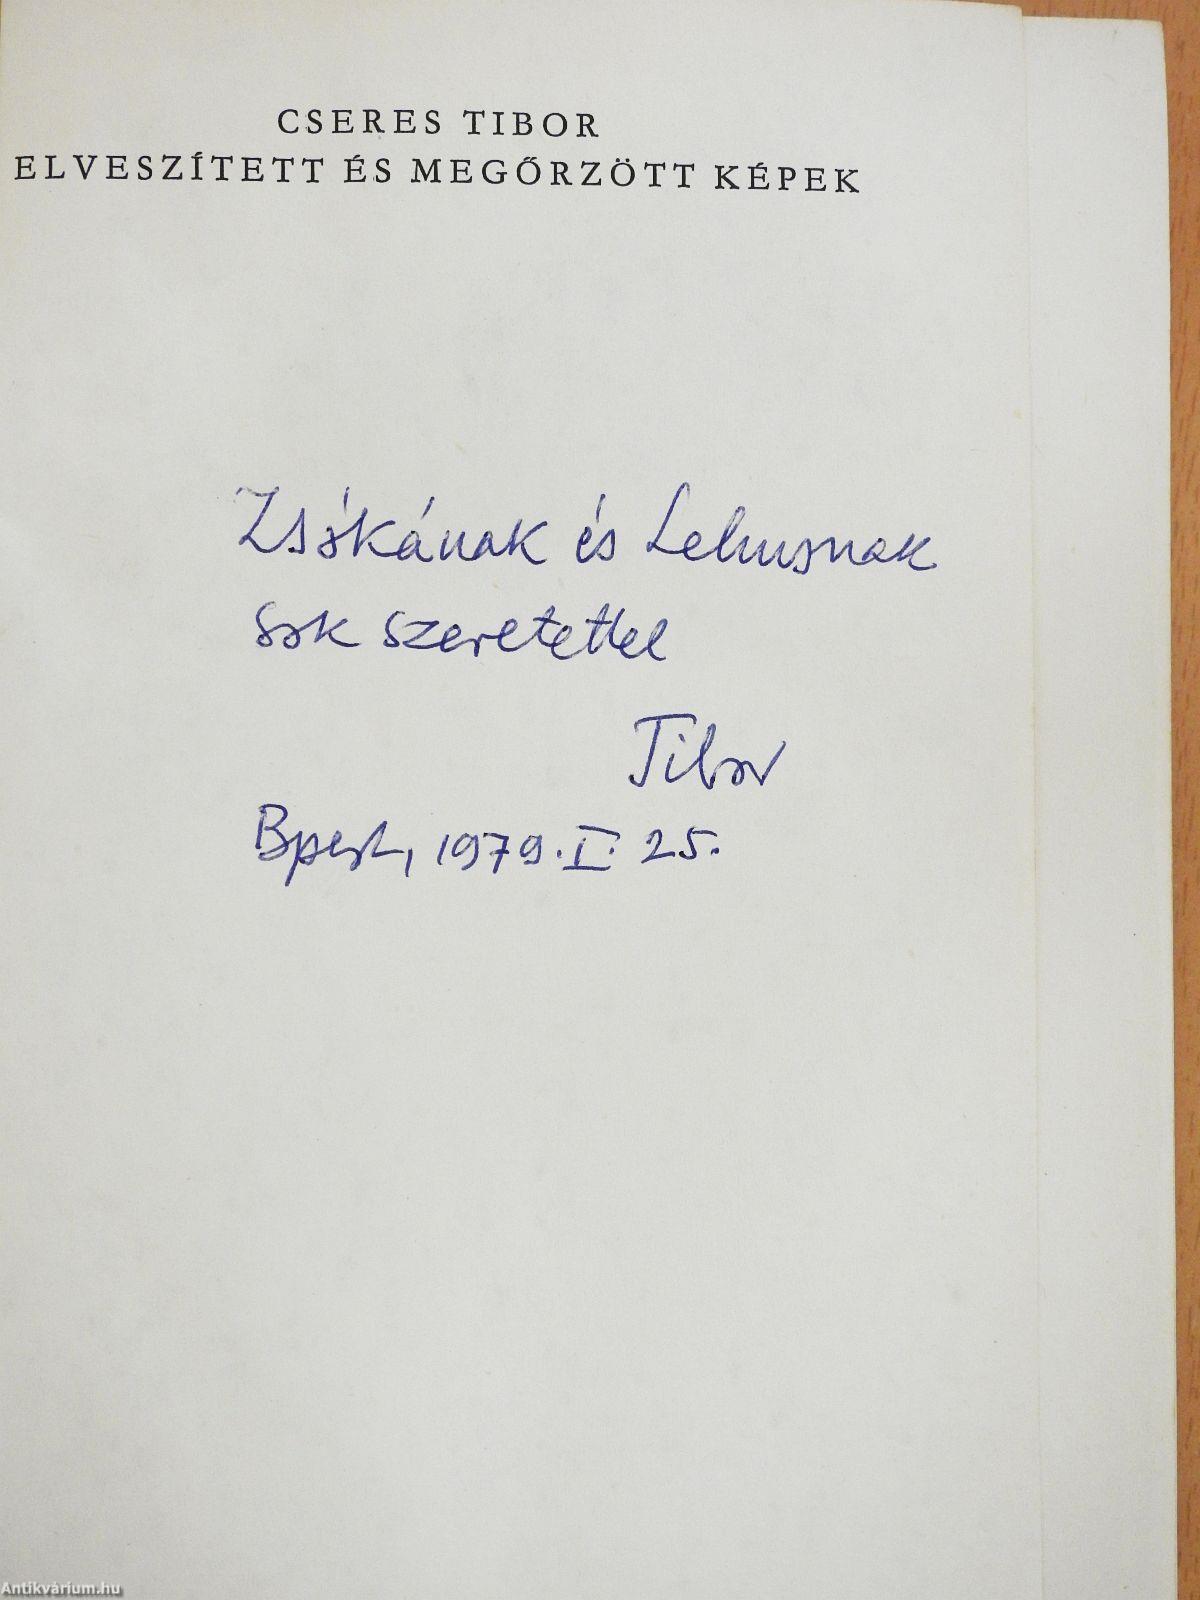 CSERES TIBOR
ELVESZÍTETT ÉS MEGŐRZÖTT KÉPEK
Zsókának és
sok szeretettel
Tibor
Bpest, 1979. I. 25.
Antikvárium.hu